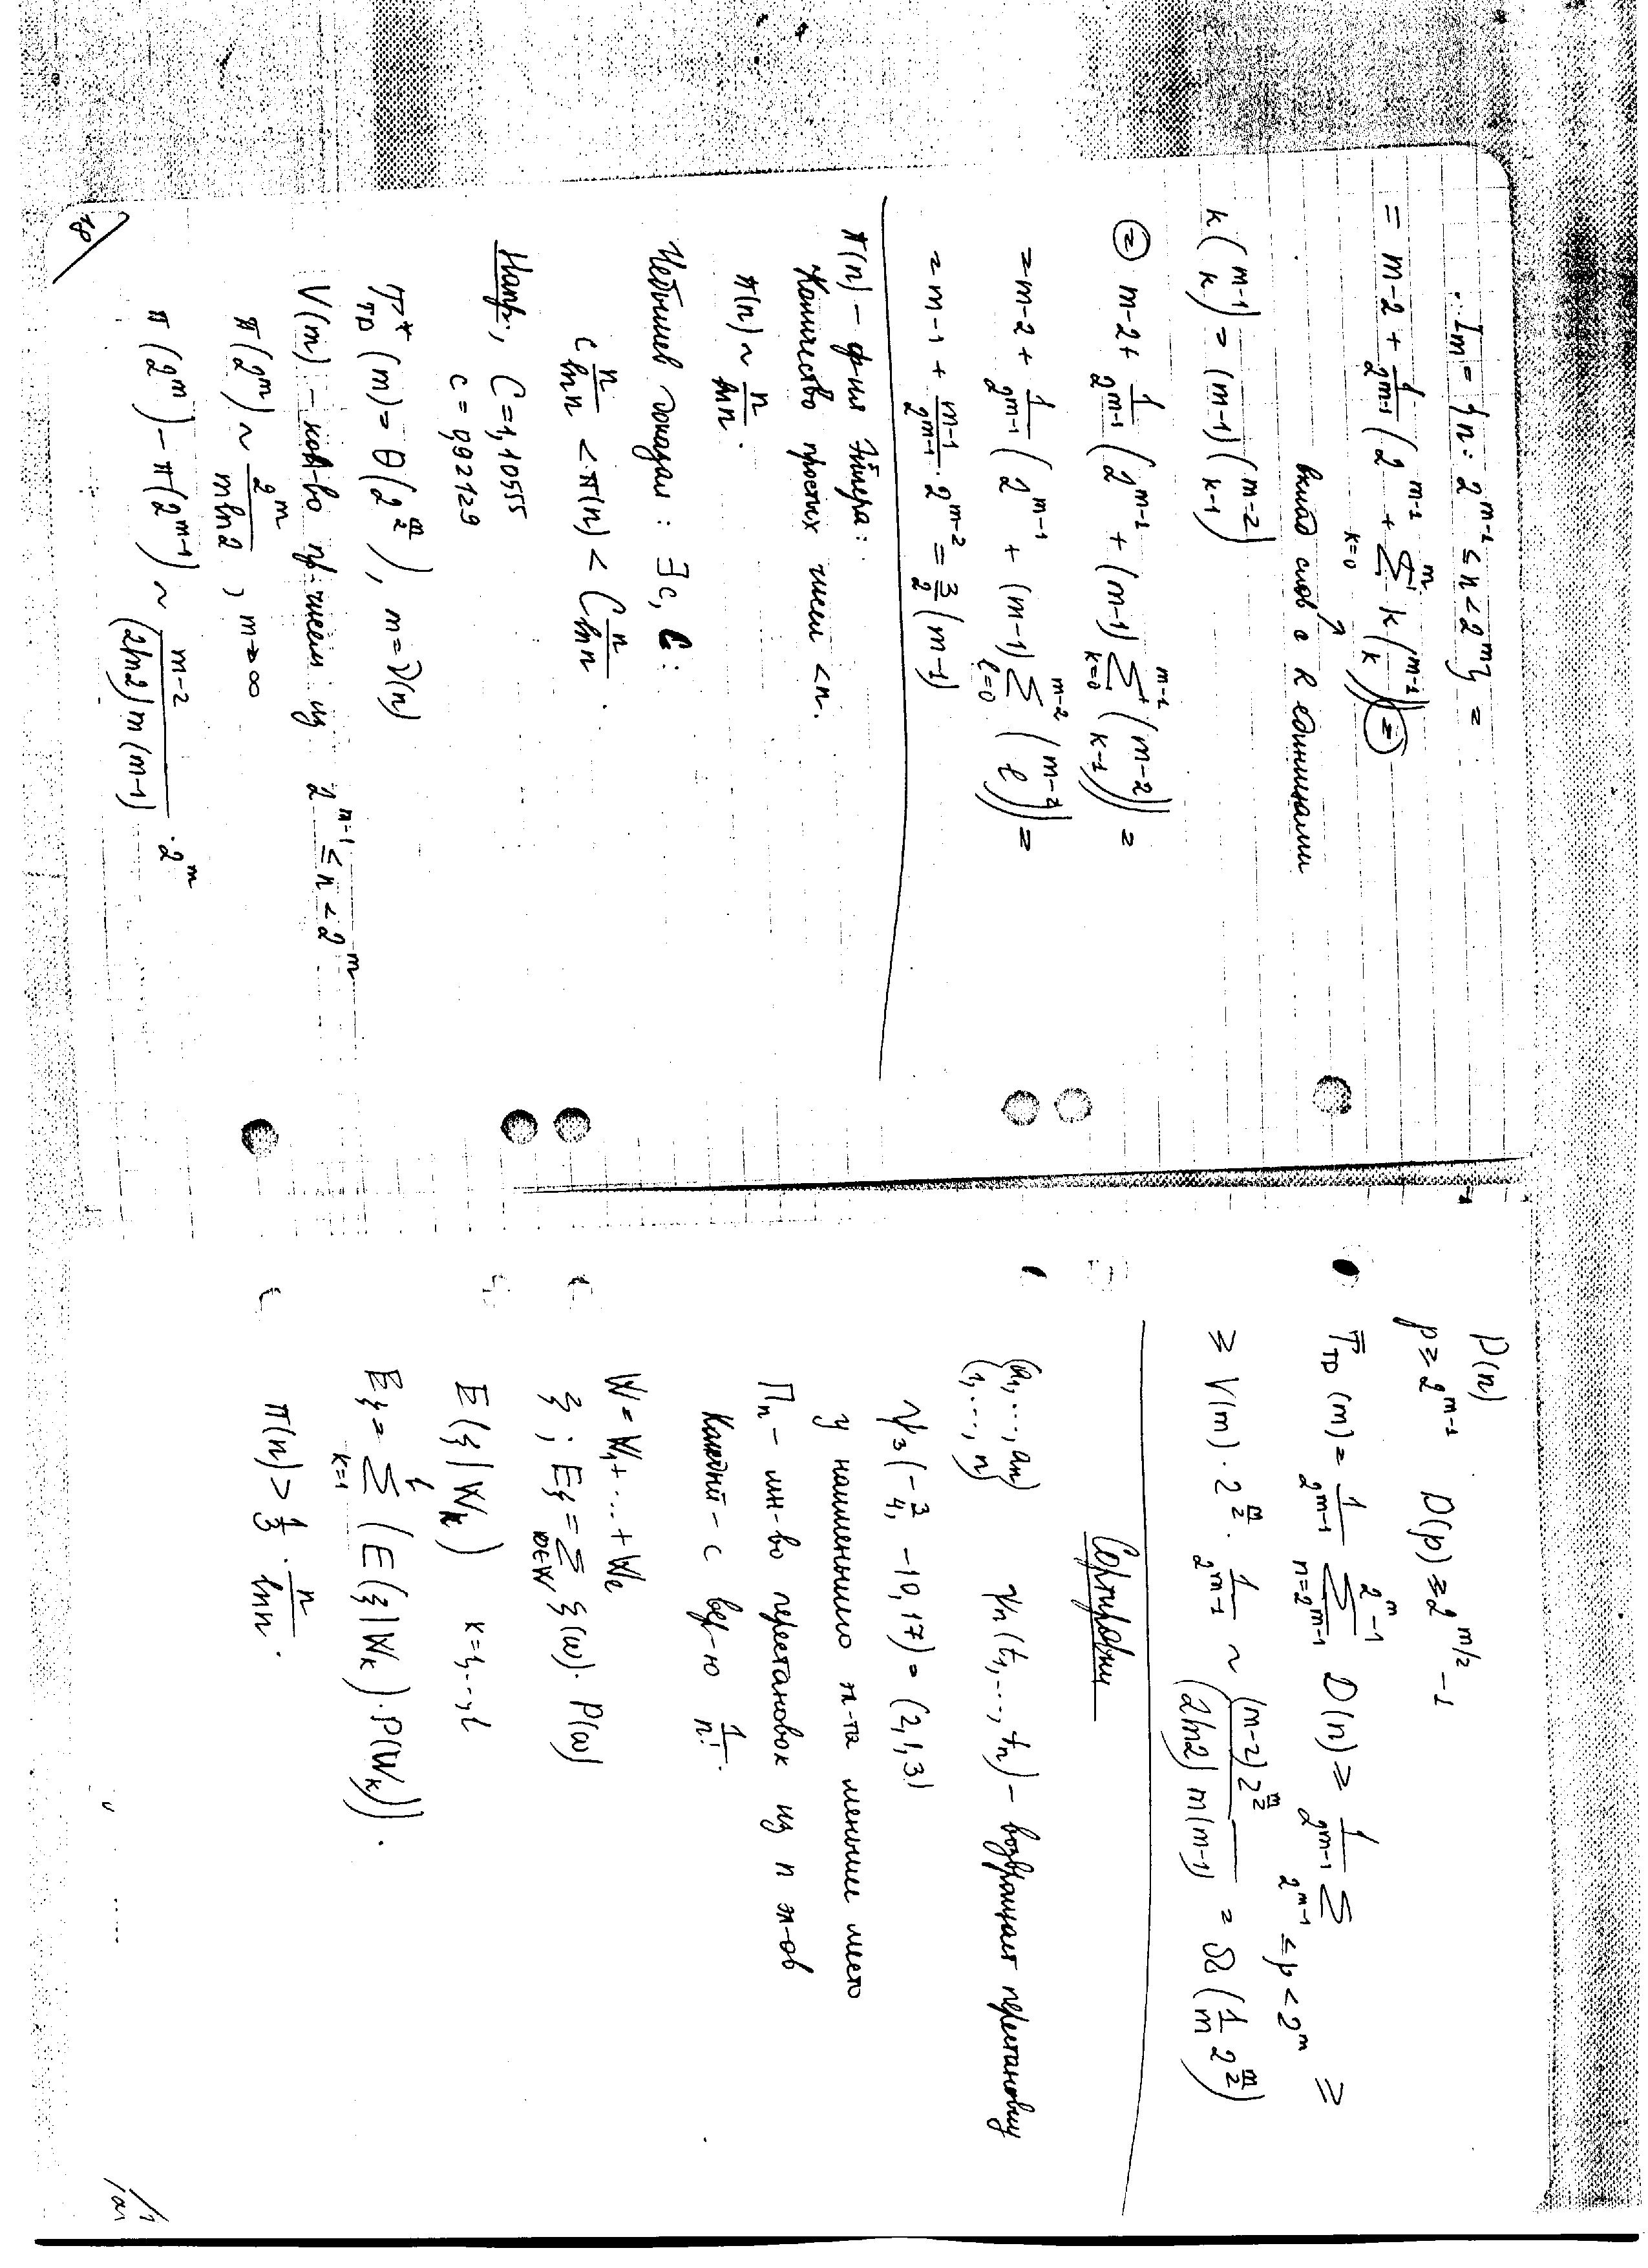 I_m = {n: 2^{m-1} ≤ n < 2^m} =
= m-2 + 1/2^{m-1} (2^{m-1} + ∑_{k=0}^{m-1} k (m-1 k)) ⊜
вклад слов с k единицами
k (m-1 k) = (m-1) (m-2 k-1)
⊜ m-2 + 1/2^{m-1} (2^{m-1} + (m-1) ∑_{k=0}^{m-1} (m-2 k-1)) =
= m-2 + 1/2^{m-1} (2^{m-1} + (m-1) ∑_{l=0}^{m-2} (m-2 l)) =
= m-1 + (m-1)/2^{m-1} · 2^{m-2} = 3/2 (m-1)
π(n) – ф-ия Эйлера:
Количество простых чисел < n.
π(n) ~ n/ln n.
Чебышев доказал: ∃ c, C:
c n/ln n < π(n) < C n/ln n.
Напр., C = 1,10555
c = 0,92129
T*_{TD} (m) = θ(2^{m/2}), m = ν(n)
V(m) – кол-во пр. чисел из 2^{m-1} ≤ n < 2^m
π(2^m) ~ 2^m/(m ln 2), m → ∞
π(2^m) – π(2^{m-1}) ~ (m-2)/((2 ln 2) m (m-1)) · 2^m
18
D(n)
p ≥ 2^{m-1} D(p) ≥ 2^{m/2} - 1
T̄_{TD} (m) = 1/2^{m-1} ∑_{n=2^{m-1}}^{2^m-1} D(n) ≥ 1/2^{m-1} ∑_{2^{m-1} ≤ p < 2^m} ≥
≥ V(m) · 2^{m/2} · 1/2^{m-1} ~ (m-2) 2^{m/2}/((2 ln 2) m (m-1)) = Ω(1/m 2^{m/2})
Сортировки
(a_1, ..., a_n) ψ_n (t_1, ..., t_n) – возвращает перестановку
(1, ..., n)
ψ_3 (-3/4, -10, 17) = (2, 1, 3)
у наименьшего эл-та меньшее место
Π_n – мн-во перестановок из n эл-ов
Каждый – с вер-ю 1/n!.
W = W_1 + ... + W_l
ξ; Eξ = ∑_{ω∈W} ξ(ω) · P(ω)
E(ξ|W_k) k = 1, ..., l
Eξ = ∑_{k=1}^{l} (E(ξ|W_k) · P(W_k)).
π(n) > 1/3 · n/ln n.